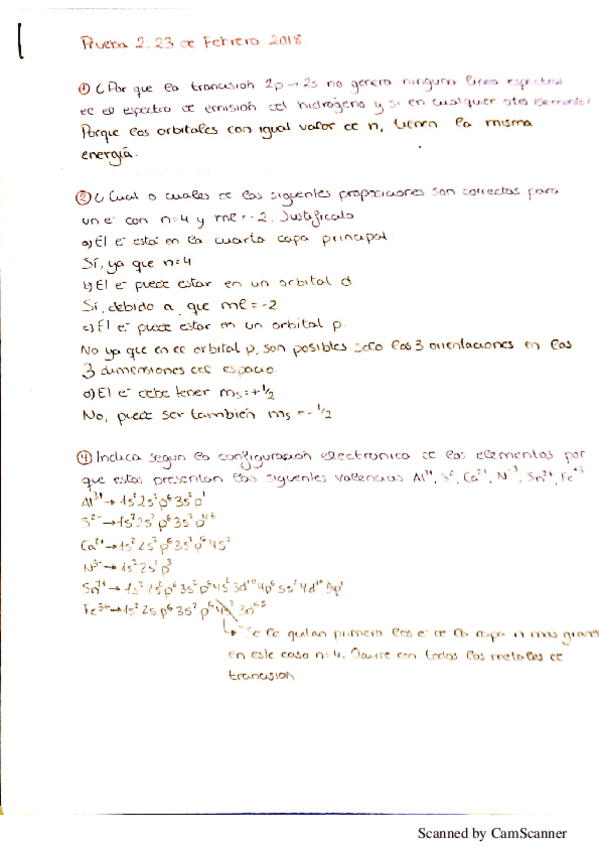 Prueba 2. 23 de Febrero 2018.
① ¿Por que la trancision 2p → 2s no genera ninguna linea espectral
ec el espectro de emisión del hidrógeno y si en cualquier otro elemento?
Porque los orbitales con igual valor de n, tienen la misma
energía.
② ¿Cual o cuales de las siguentes proposiciones son correctas para
un e⁻ con n=4 y ml=-2. Justificalo
a) El e⁻ está en la cuarta capa principal
Sí, ya que n=4
b) El e⁻ puede estar en un orbital d
Sí, debido a que ml=-2
c) El e⁻ puede estar en un orbital p.
No ya que en el orbital p, son posibles solo las 3 orientaciones en las
3 dimensiones del espacio.
d) El e⁻ debe tener ms=+1/2
No, puede ser también ms=-1/2
④ Indica segun la configuración electronica de los elementos por
que estas presentan las siguentes valencias Al³⁺, S²⁻, Ca²⁺, N⁻³, Sn²⁺, Fe⁺³
Al³⁺ → 1s²2s²p⁶3s²p¹
S²⁻ → 1s²2s²p⁶3s²p⁴
Ca²⁺ → 1s²2s²p⁶3s²p⁶4s²
N³⁻ → 1s²2s²p³
Sn²⁺ → 1s²2s²p⁶3s²p⁶4s²3d¹⁰4p⁶5s²4d¹⁰5p¹
Fe³⁺ → 1s²2s p⁶3s²p⁶4s²3d
Se le quitan primero los e⁻ de la capa n mas grande
en este caso n=4. Ocurre con todos los metales de
trancision
Scanned by CamScanner